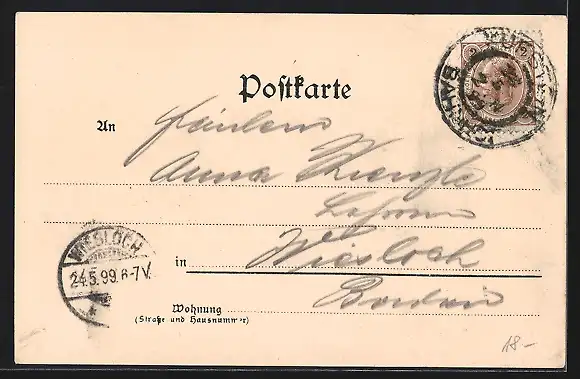 Postkarte
An Fräulein
Anna
in Wiesloch
Baden
Wohnung
(Straße und Hausnummer)
WIESLOCH
24.5.99.6-7V.
2 2
18.-